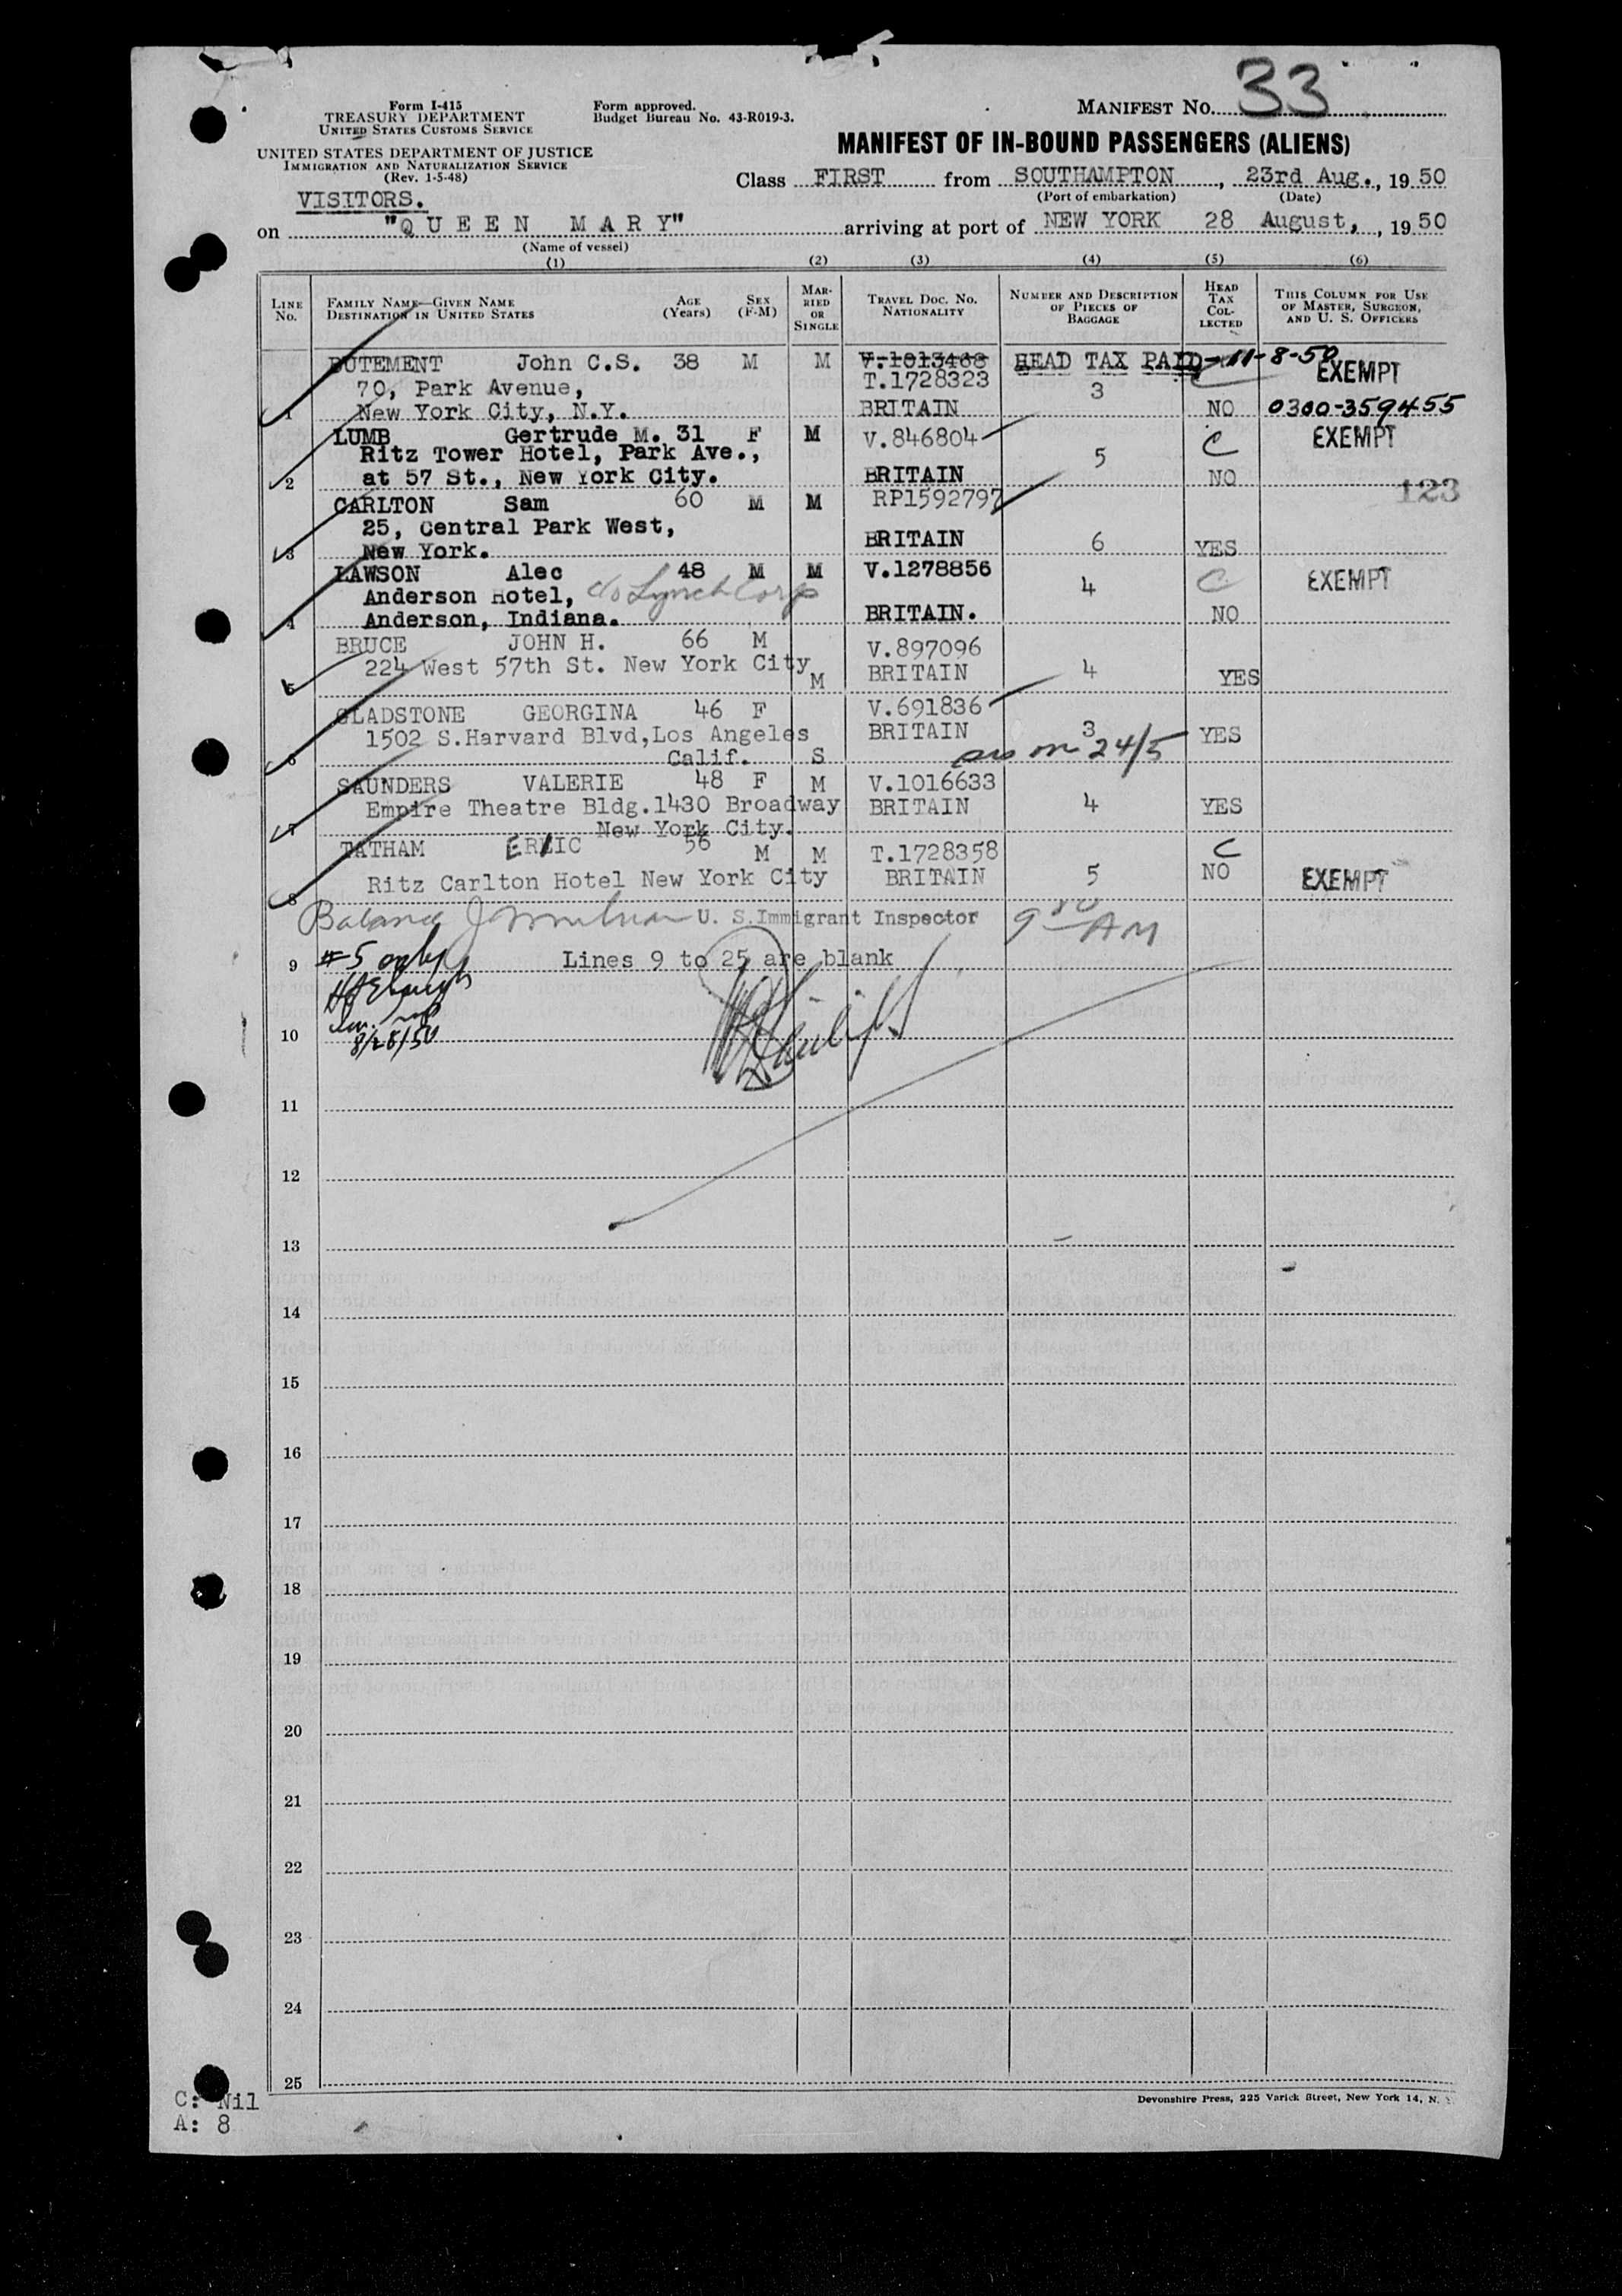 Form I-415
TREASURY DEPARTMENT
UNITED STATES CUSTOMS SERVICE
UNITED STATES DEPARTMENT OF JUSTICE
IMMIGRATION AND NATURALIZATION SERVICE
(Rev. 1-5-48)
Form approved.
Budget Bureau No. 43-R019-3.
MANIFEST NO. 33
MANIFEST OF IN-BOUND PASSENGERS (ALIENS)
Class FIRST from SOUTHAMPTON, 23rd Aug., 1950
(Port of embarkation) (Date)
VISITORS.
on "QUEEN MARY" arriving at port of NEW YORK 28 August, , 1950
(Name of vessel)
(1) (2) (3) (4) (5) (6)
LINE NO. FAMILY NAME—GIVEN NAME DESTINATION IN UNITED STATES AGE (Years) SEX (F-M) MARRIED OR SINGLE TRAVEL DOC. NO. NATIONALITY NUMBER AND DESCRIPTION OF PIECES OF BAGGAGE HEAD TAX COLLECTED THIS COLUMN FOR USE OF MASTER, SURGEON, AND U. S. OFFICERS
BUTEMENT John C.S. 38 M M V.1013468 HEAD TAX PAID 11-8-50
70, Park Avenue, T.1728323 3 EXEMPT
1 New York City, N.Y. BRITAIN NO 0300-359455
LUMB Gertrude M. 31 F M V.846804 C EXEMPT
Ritz Tower Hotel, Park Ave., 5
2 at 57 St., New York City. BRITAIN NO
123
CARLTON Sam 60 M M RP1592797
25, Central Park West,
3 New York. BRITAIN 6 YES
LAWSON Alec 48 M M V.1278856 C EXEMPT
Anderson Hotel, c/o Lynch Corp 4
4 Anderson, Indiana. BRITAIN. NO
BRUCE JOHN H. 66 M V.897096
224 West 57th St. New York City BRITAIN 4
5 M YES
GLADSTONE GEORGINA 46 F V.691836
1502 S.Harvard Blvd,Los Angeles BRITAIN 3 YES
6 Calif. S on 24/5
SAUNDERS VALERIE 48 F M V.1016633
Empire Theatre Bldg.1430 Broadway BRITAIN 4 YES
7 New York City.
TATHAM ERIC 56 M M T.1728358 C
Ritz Carlton Hotel New York City BRITAIN 5 NO EXEMPT
8
Balance U. S. Immigrant Inspector 9 30 AM
9 #5 only Lines 9 to 25 are blank
10
8/28/50
11
12
13
14
15
16
17
18
19
20
21
22
23
24
25
C: Nil
A: 8
Devonshire Press, 225 Varick Street, New York 14, N.